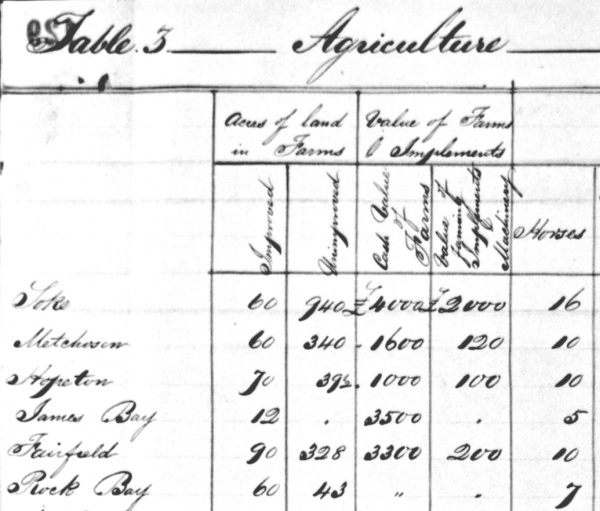 Table 3 Agriculture
Acres of land in Farms Value of Farms & Implements
Improved Unimproved Cash Value of Farms Value of Farming Implements Machinery Horses
Soke 60 940 £4000 £2000 16
Metchosen 60 340 . 1600 120 10
Hopeton 70 . 1000 100 10
James Bay 12 . 3500 . 5
Fairfield 90 328 3300 200 10
Rock Bay 60 43 " . 7